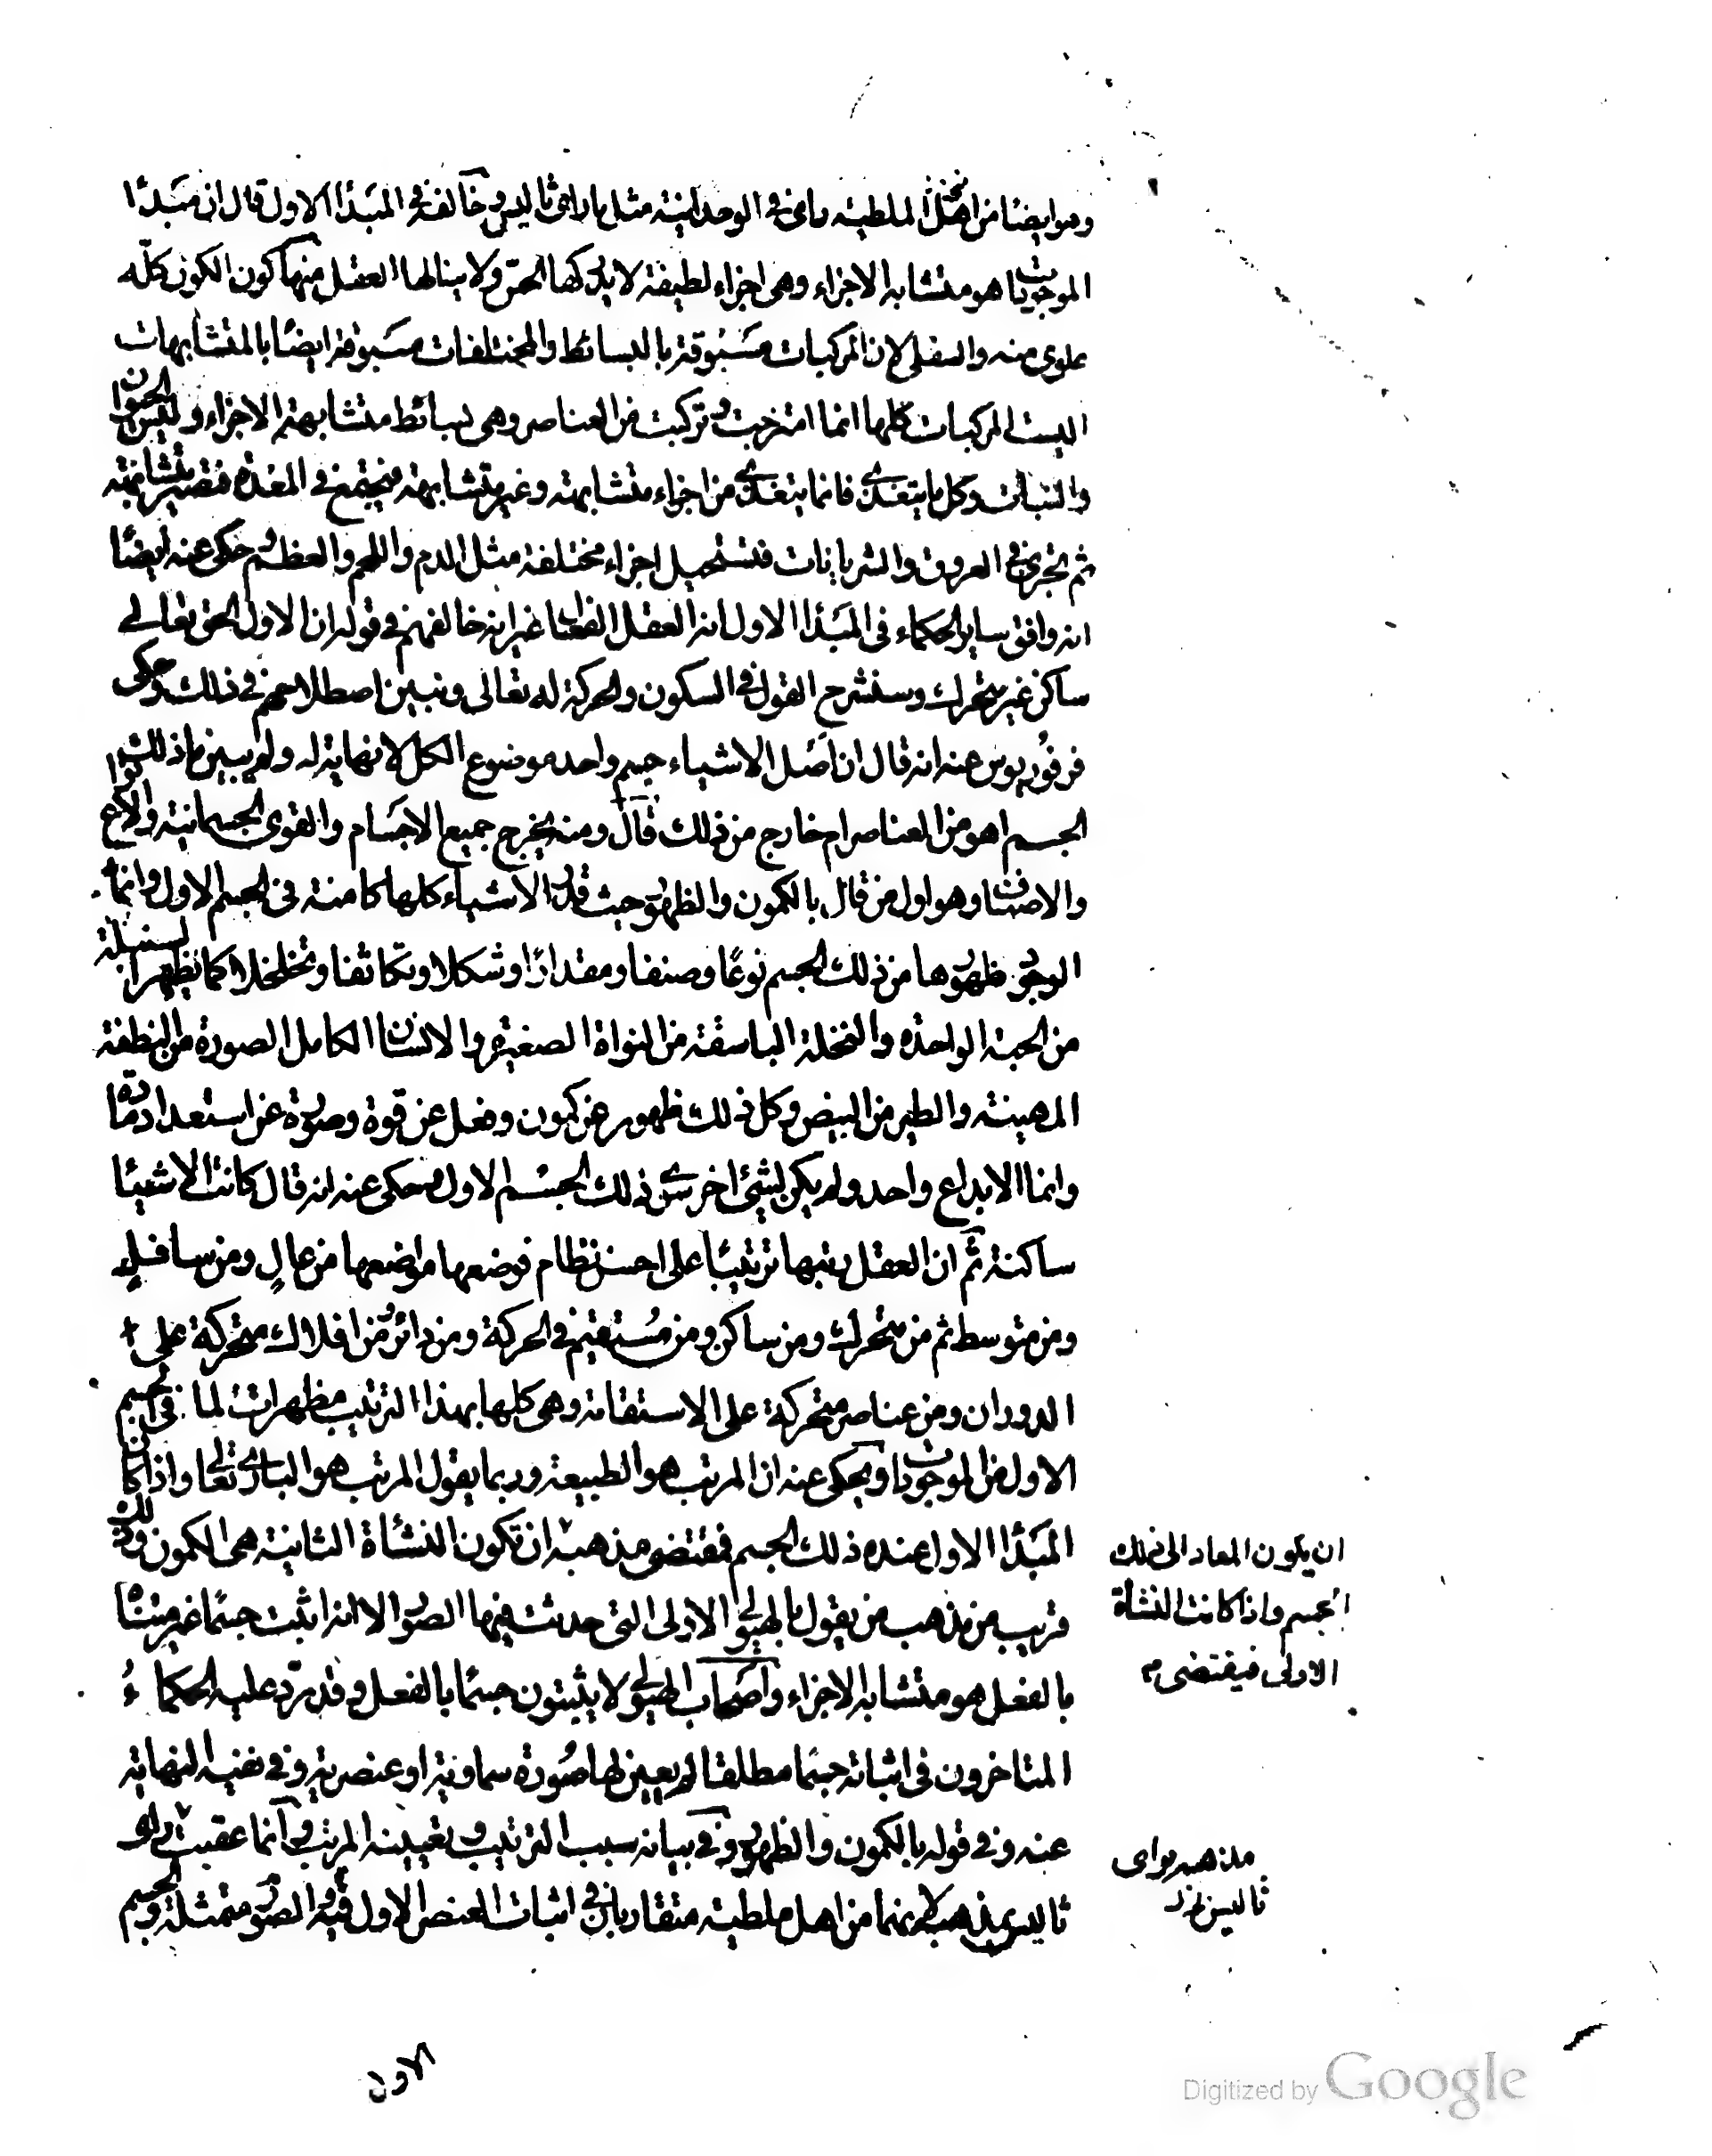 وهو ايضا من اهل الملطية راى فى الوحدانية مثل ما راى ثاليس وخالفه فى المبدأ الاول قال ان مبدأ
الموجودات هو متشابه الاجزاء وهى اجزاء لطيفة لا يدركها الحس ولا ينالها العقل منها كون الكون كله
علوى منه والسفلى لان المركبات مسبوقة بالبسائط والمختلفات مسبوقة ايضا بالمتشابهات
اليست المركبات كلها انما امتزجت وتركبت من العناصر وهى بسائط متشابهة الاجزاء وليس الحيوان
والنبات وكل ما يتغذى فانما يتغذى من اجزاء متشابهة وغير متشابهة فيجتمع فى المعدة فتصير متشابهة
ثم تجرى فى العروق والشريانات فتستحيل اجزاء مختلفة مثل الدم واللحم والعظم وحكى عنه ايضا
انه وافق ساير الحكماء فى المبدأ الاول انه العقل الفعال غير انه خالفهم فى قوله ان الاول الحق تعالى
ساكن غير متحرك وسنشرح القول فى السكون والحركة له تعالى ونبين اصطلاحهم فى ذلك وحكى
فرفوريوس عنه انه قال ان اصل الاشياء جسم واحد موضوع الكل لا نهاية له ولم يبين ما ذلك
الجسم اهو من العناصر ام خارج من ذلك قال ومنه يخرج جميع الاجسام والقوى الجسمانية والانواع
والاصناف وهو اول من قال بالكمون والظهور حيث قدر الاشياء كلها كامنة فى الجسم الاول وانما
الوجود ظهورها من ذلك الجسم نوعا وصنفا ومقدارا وشكلا وتكاثفا وتخلخلا كما تظهر السنبلة
من الحبة الواحدة والنخلة الباسقة من النواة الصغيرة والانسان الكامل الصورة من النطفة
المهينة والطير من البيض وكل ذلك ظهور عن كمون وفعل عن قوة وصورة عن استعداد مادة
وانما الابداع واحد ولم يكن لشئ اخر سوى ذلك الجسم الاول وحكى عنه انه قال كانت الاشياء
ساكنة ثم ان العقل رتبها ترتيبا على احسن نظام فوضعها مواضعها من عال ومن سافل
ومن متوسط ثم من متحرك ومن ساكن ومن مستقيم فى الحركة ومن دائر ومن افلاك متحركة على
الدوران ومن عناصر متحركة على الاستقامة وهى كلها بهذا الترتيب مظهرات لما فى الجسم
الاول من الموجودات ويحكى عنه ان المرتب هو الطبيعة وربما يقول المرتب هو البارى تعالى واذا كان
المبدأ الاول عنده ذلك الجسم فمقتضى مذهبه ان تكون النشأة الثانية هى الكمون وذلك
ان يكون المعاد الى ذلك
الجسم واذا كانت النشأة
الاولى فيقتضى
قريب من مذهب من يقول بالهيولى الاولى التى حدثت فيها الصور الا انه اثبت جسما غير متناه
بالفعل هو متشابه الاجزاء واصحاب الهيولى لا يثبتون جسما بالفعل وقد رد عليه الحكماء
المتاخرون فى اثباته جسما مطلقا لم يعين لها صورة سماوية او عنصرية وفى نفيه النهاية
عنه وفى قوله بالكمون والظهور وفى بيانه سبب الترتيب وتعيينه المرتب وانما عقبت
مذهبه براى
ثاليس
ثاليس لانهما من اهل ملطية متقاربان فى اثبات العنصر الاول فيه الصور متمثلة والجسم
الاول
Digitized by Google